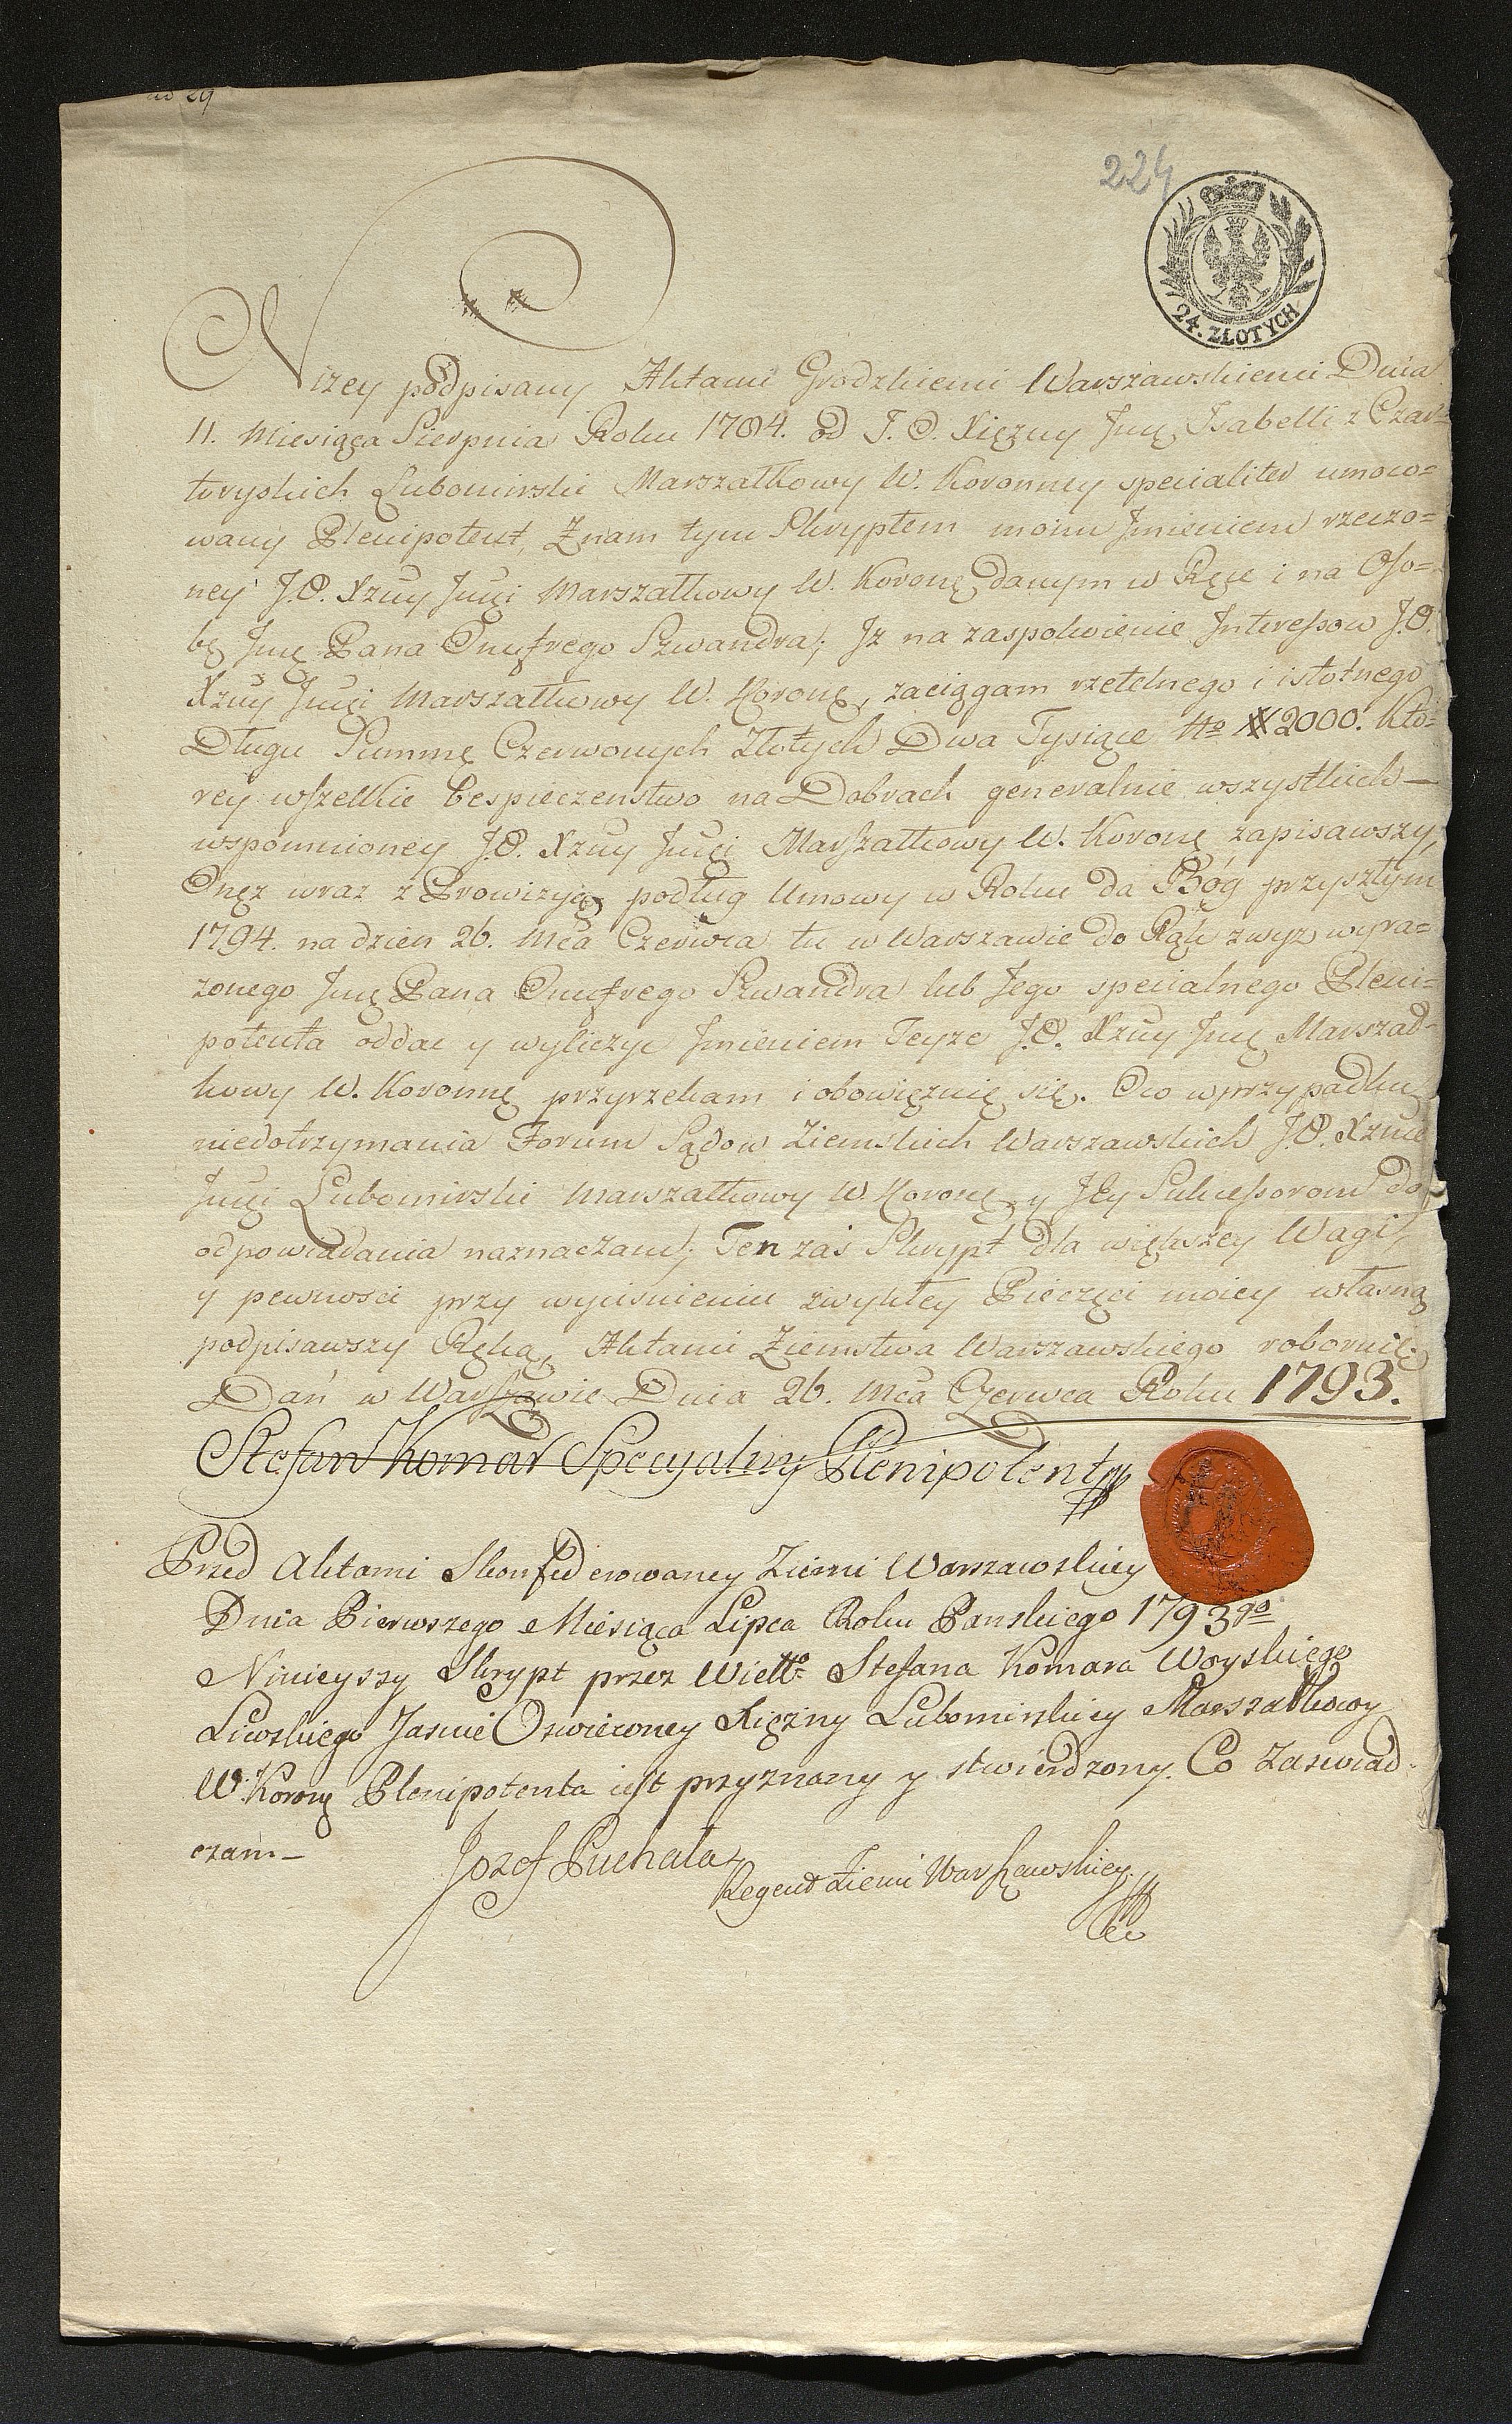 ad 29
224
24. ZŁOTYCH
Nizey podpisany Aktami Grodzkiemi Warszawskiemi Dnia
11. Miesiąca Sierpnia Roku 1784. od J. O. Xięzny Jmę Isabelli z Czar=
toryskich Lubomirski Marszałkowy W. Koronney specialiter umoco=
wany Plenipotent, Znam tym Skryptem moim Jmieniem rzeczo=
ney J.O. Xzny Jmci Marszałkowy W. Koronę danym w Ręce i na Oso=
bę Jmę Pana Onufrego Szwandra; Jz na zaspokoienie Interessow J.O.
Xzny Jmci Marszałkowy W. Koronę, zaciągam rzetelnego i istotnego
Długu Summę Czerwonych Złotych Dwa Tysiące No XX 2000. Kto=
rey wszelkie bespieczenstwo na Dobrach generalnie wszystkich —
wspomnioney J.O. Xzny Jmci Marszałkowy W. Koronę zapisawszy,
Onęz wraz z Prowizyą podług Umowy w Roku da Bóg przyszłym
1794. na dzien 26. Mca Czerwca tu w Warszawie do Rąk zwyz wyra=
zonego Jmę Pana Onufrego Szwandra lub Jego specialnego Pleni=
potenta oddac y wyliczyc Jmieniem Teyze J.O. Xzny Jmę Marszał=
kowy W. Koronnę przyrzekam i obowięzuię się. Oco w przypadku
niedotrzymania Forum Sądow Ziemskich Warszawskich J.O. Xznie
Jmci Lubomirski Marszałkowy W. Koronę y Jey Sukcessorom do
odpowiadania naznaczam; Ten zaś Skrypt dla większey Wagi,
y pewnosci przy wyciśnieniu zwykłey Pieczęci moiey własną
podpisawszy Ręką, Aktami Ziemstwa Warszawskiego roboruię.
Dań w Warszawie Dnia 26. Mca Czerwca Roku 1793.
Stefan Komar Specyalny Plenipotent
Przed Aktami Skonfederowaney Ziemi Warszawskiey
Dnia Pierwszego Miesiąca Lipca Roku Panskiego 1793go
Ninieyszy Skrypt przez Wielło Stefana Komara Woyskiego
Liwskiego Jasnie Oswieconey Xięzny Lubomirskiey Marszałkowy
W. Koronę Plenipotenta iest przyznany y stwierdzony. Co Zaswiad=
czam —
Jozef Puchała
Regent Ziemi Warszawskiey.